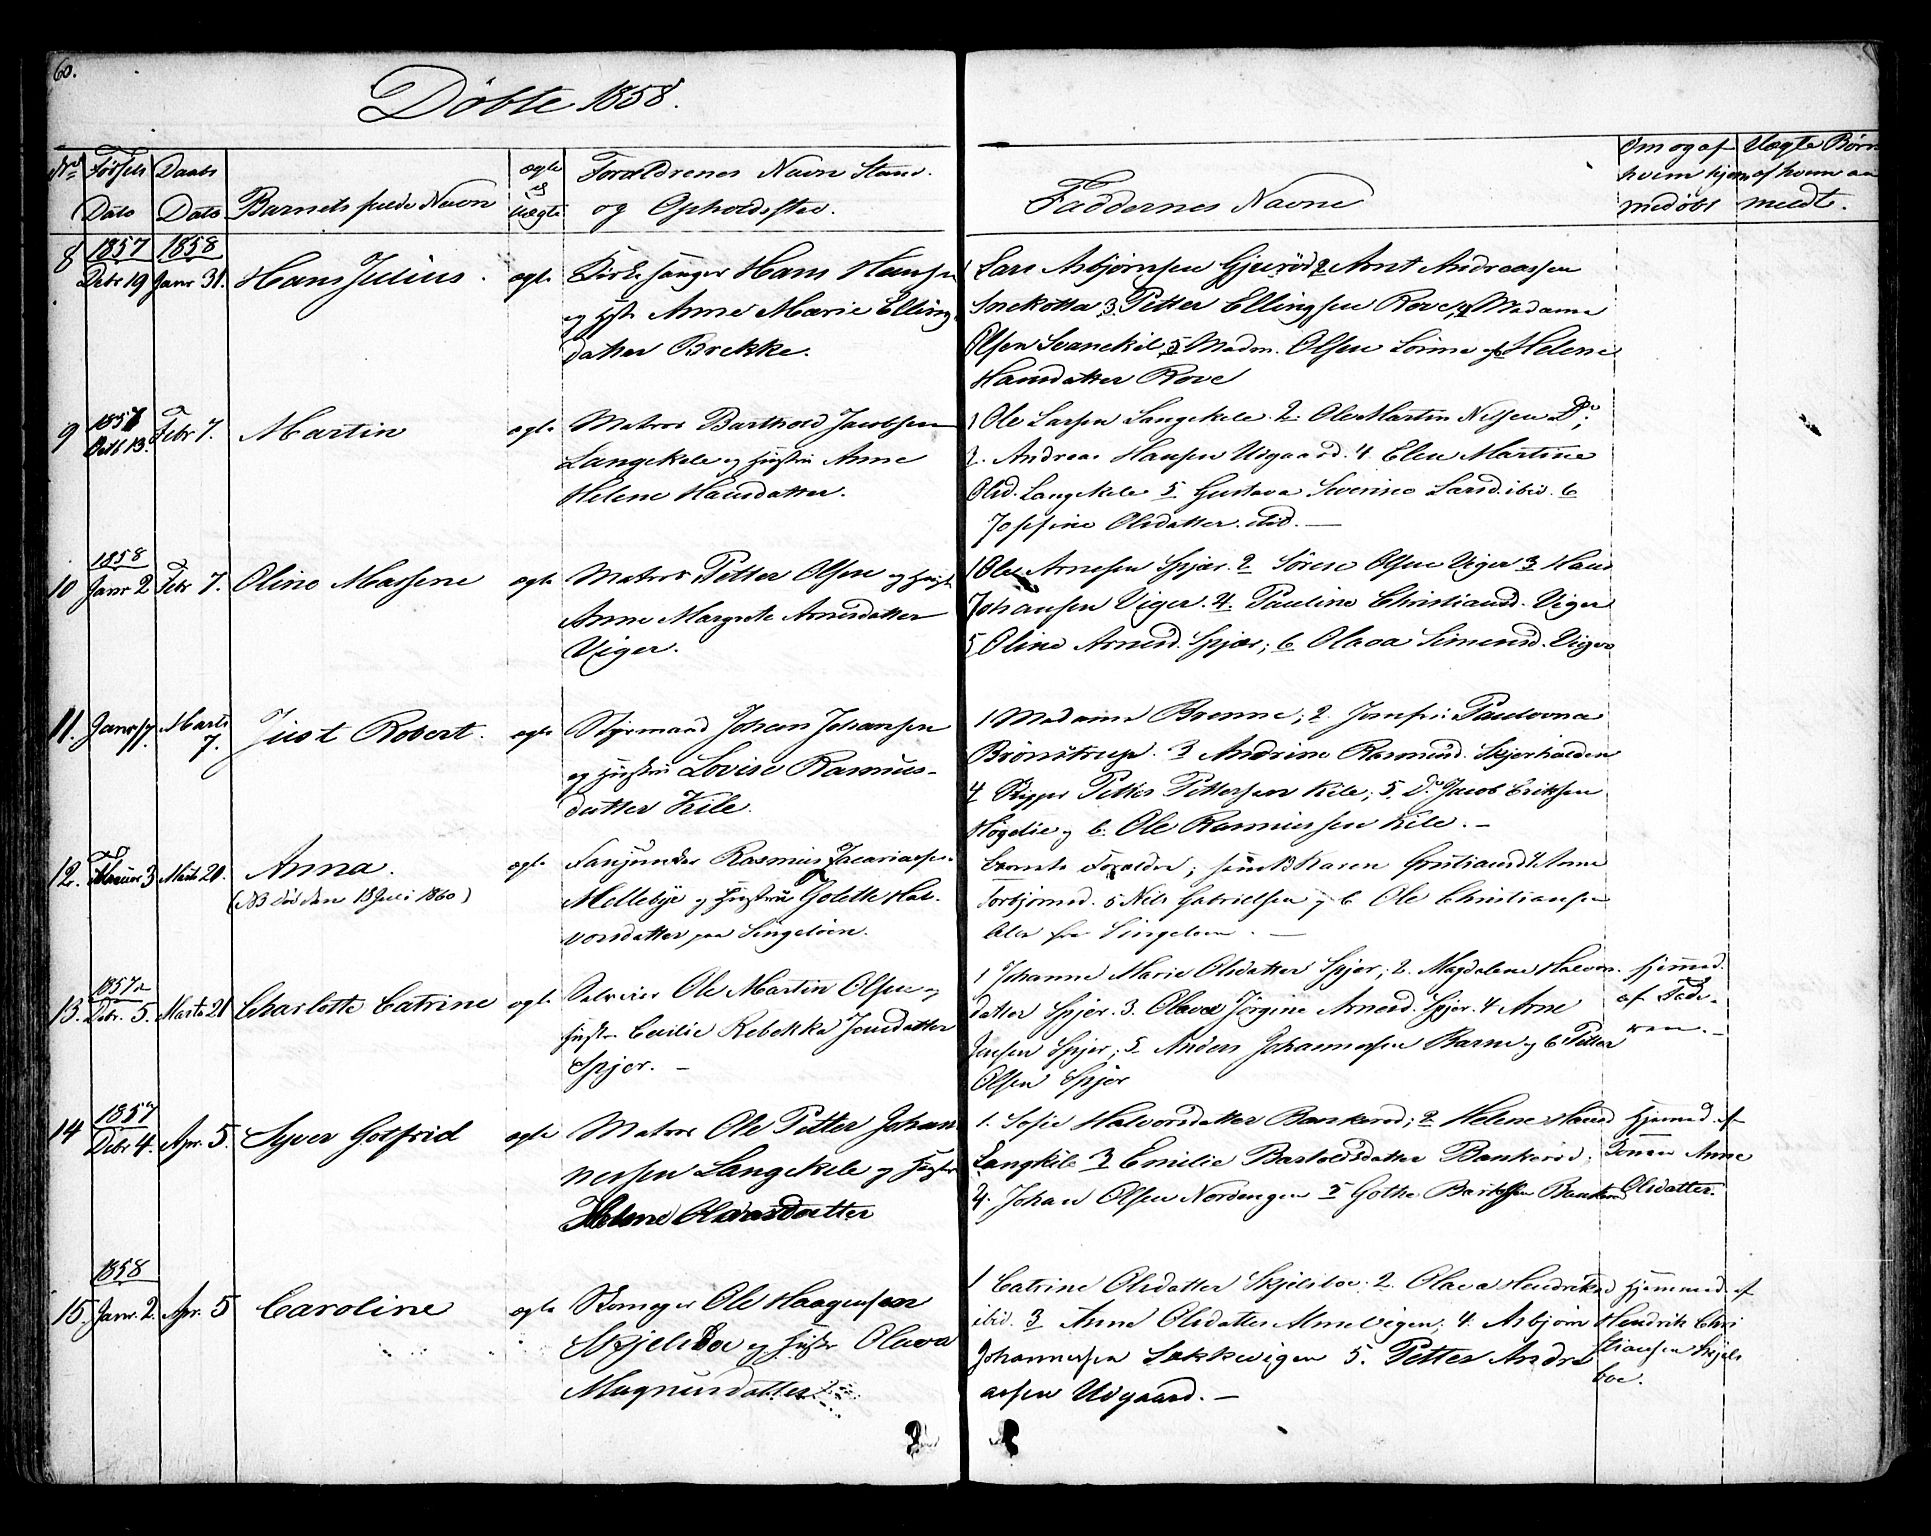 60.
Døbte 1858.
No Fødsels Daabs ægte Forældrenes Navn Stand Om og af Uægte Børn
Dato Dato Barnets fulde Navn og uægte og Opholdssted. Faddernes Navne hvem hjem- af hvem an
medøbt meldt.
8 1857 1858
Debr 19 Janr 31. Hans Julius. ægte Kirkesanger Hans Hansen
og Hst. Anne Marie Ellings
datter Brekke.
Lars Asbjørnsen Gjerød 2 Arnt Andreassen
Snekotta 3. Petter Ellingsen Rove, 4 Madame
Olsen Svanekil 5 Madm. Olsen Lønne og 6 Helene
Hansdatter Rove
9 1857
Octb 13. Febr 7. Martin ægte Matros Barthold Jacobsen
Langekile og Hustru Anne
Helene Hansdatter.
1 Ole Larsen Langekile. 2. Ole Martin Nilsen Do;
3. Andreas Hansen Udgaard. 4 Elen Martine
Olsd. Langekile 5 Gustava Severine Larsd. ibid. 6
Josefine Olsdatter. ibid. —
10 1858
Janr 2 Febr 7. Oline Massene ægte Matros Petter Olsen og Hust
Anne Margrete Arnesdatter
Viger.
1 Ole Arnesen Spjær. 2 Sørine Olsen Viger 3 Hans
Johansen Viger. 4. Pauline Christiansd. Viger
5 Oline Arnesd. Spjær; 6 Olava Simensd. Viger
11. Janr 17. Marts
7. Just Robert. ægte Styrmand Johan Johansen
og Hustru Lovise Rasmus-
datter Kile.
1 Madame Brenne; 2 Jomfru Paulovna
Brønstrup. 3 Andrine Rasmusd. Skjerhalden
4 Skipper Petter Pettersen Kile; 5. Do Jacob Eriksen
Høgelie og 6. Ole Rasmussen Kile. —
12. Febr 3 Marts 20. Anna.
(NB død den 13 Juli 1860)
ægte Rasmus Zacariassen
Mellebye og Hustru Golette Hal-
vorsdatter paa Singeløen.
Barnets Forældre; Karen Christiansd. 4. Anne
Torbjørnsd. 5 Nils Gabrielsen og 6 Ole Christiansen
Alle fra Singeløen. —
13. 1857
Debr. 5. Marts 21 Charlotte Catrine ægte Selveier Ole Martin Olsen og
Hustru Cecilie Rebekka Jensdatter
Spjær. —
1 Johanne Marie Olsdatter Spjær; 2. Magdalene Halvors
datter Spjær. 3. Olava Jørgine Arnesd. Spjær. 4 Arne
Jensen Spjær; 5 Anders Johannesen Barm og 6 Petter
Olsen Spjær
hjemmed.
af Fade-
ren. —
14 1857
Debr 4. Apr. 5. Syver Gotfrid ægte Matros Ole Petter Johan
nessen Langekile og Hustru
Helene Olausdatter
1. Sofie Halvorsdatter Bankerød; 2 Helene Hansd
Langkile 3 Emilie Bartoldsdatter Bankerød;
4. Johan Olsen Nordengen 5 Gothe Bertelsen Bankerød
Hjemmed. af
Konen Anne
Olsdatter.
15. 1858
Janr. 2. Apr. 5 Caroline ægte Skomager Ole Haagensen
Skjelsboe og Hustr Olava
Magnusdatter
1 Catrine Olsdatter Skjelsboe. 2. Olava Hendriksd
ibid. 3 Anne Olsdatter Almevigen; 4. Asbjørn
Johannessen Sækkevigen 5. Petter Andre
assen Udgaard. —
Hjemmed. af
Hendrik Chri
stiansen Skjels
boe.